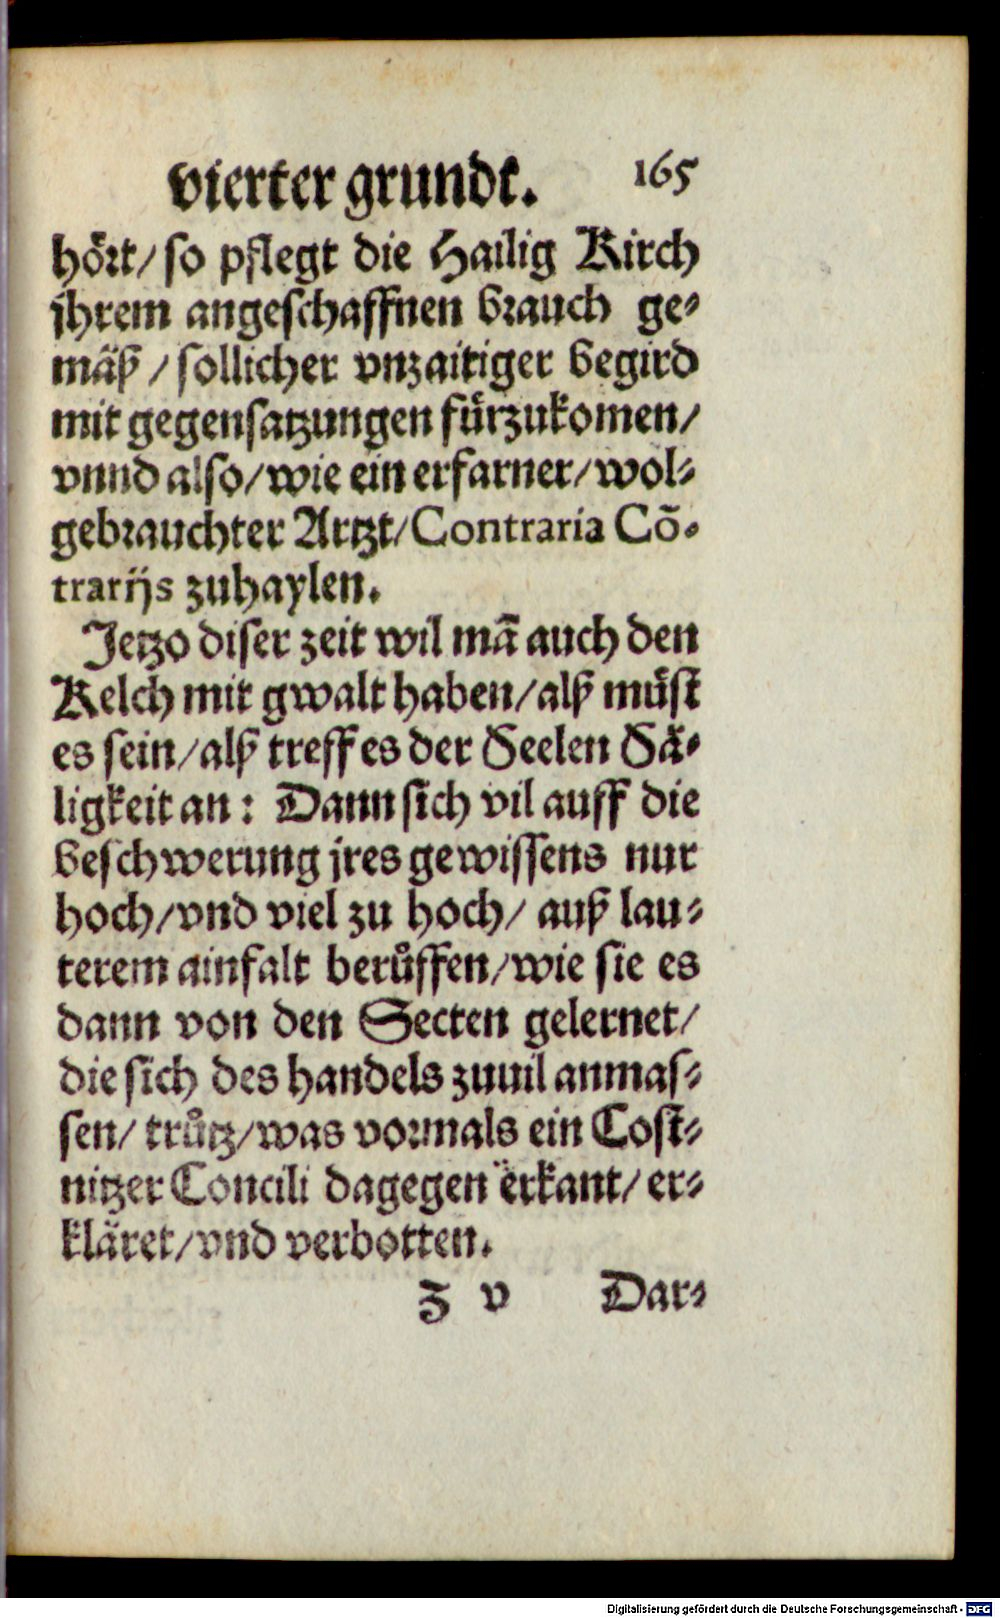 vierter grundt. 165
hört/ so pflegt die Hailig Kirch
jhrem angeschaffnen brauch ge-
mäß / sollicher vnzaitiger begird
mit gegensatzungen fürzukomen/
vnnd also/ wie ein erfarner/ wol-
gebrauchter Artzt/ Contraria Cõ-
trarijs zuhaylen.
Jetzo diser zeit wil mã auch den
Kelch mit gwalt haben/ alß müst
es sein/ alß treff es der Seelen Sä-
ligkeit an: Dann sich vil auff die
beschwerung jres gewissens nur
hoch/ vnd viel zu hoch/ auß lau-
terem ainfalt berůffen/ wie sie es
dann von den Secten gelernet/
die sich des handels zuuil anmas-
sen/ trůtz/ was vormals ein Cost-
nitzer Concili dagegen erkant/ er-
kläret/ vnd verbotten.
Z v Dar-
Digitalisierung gefördert durch die Deutsche Forschungsgemeinschaft - DFG